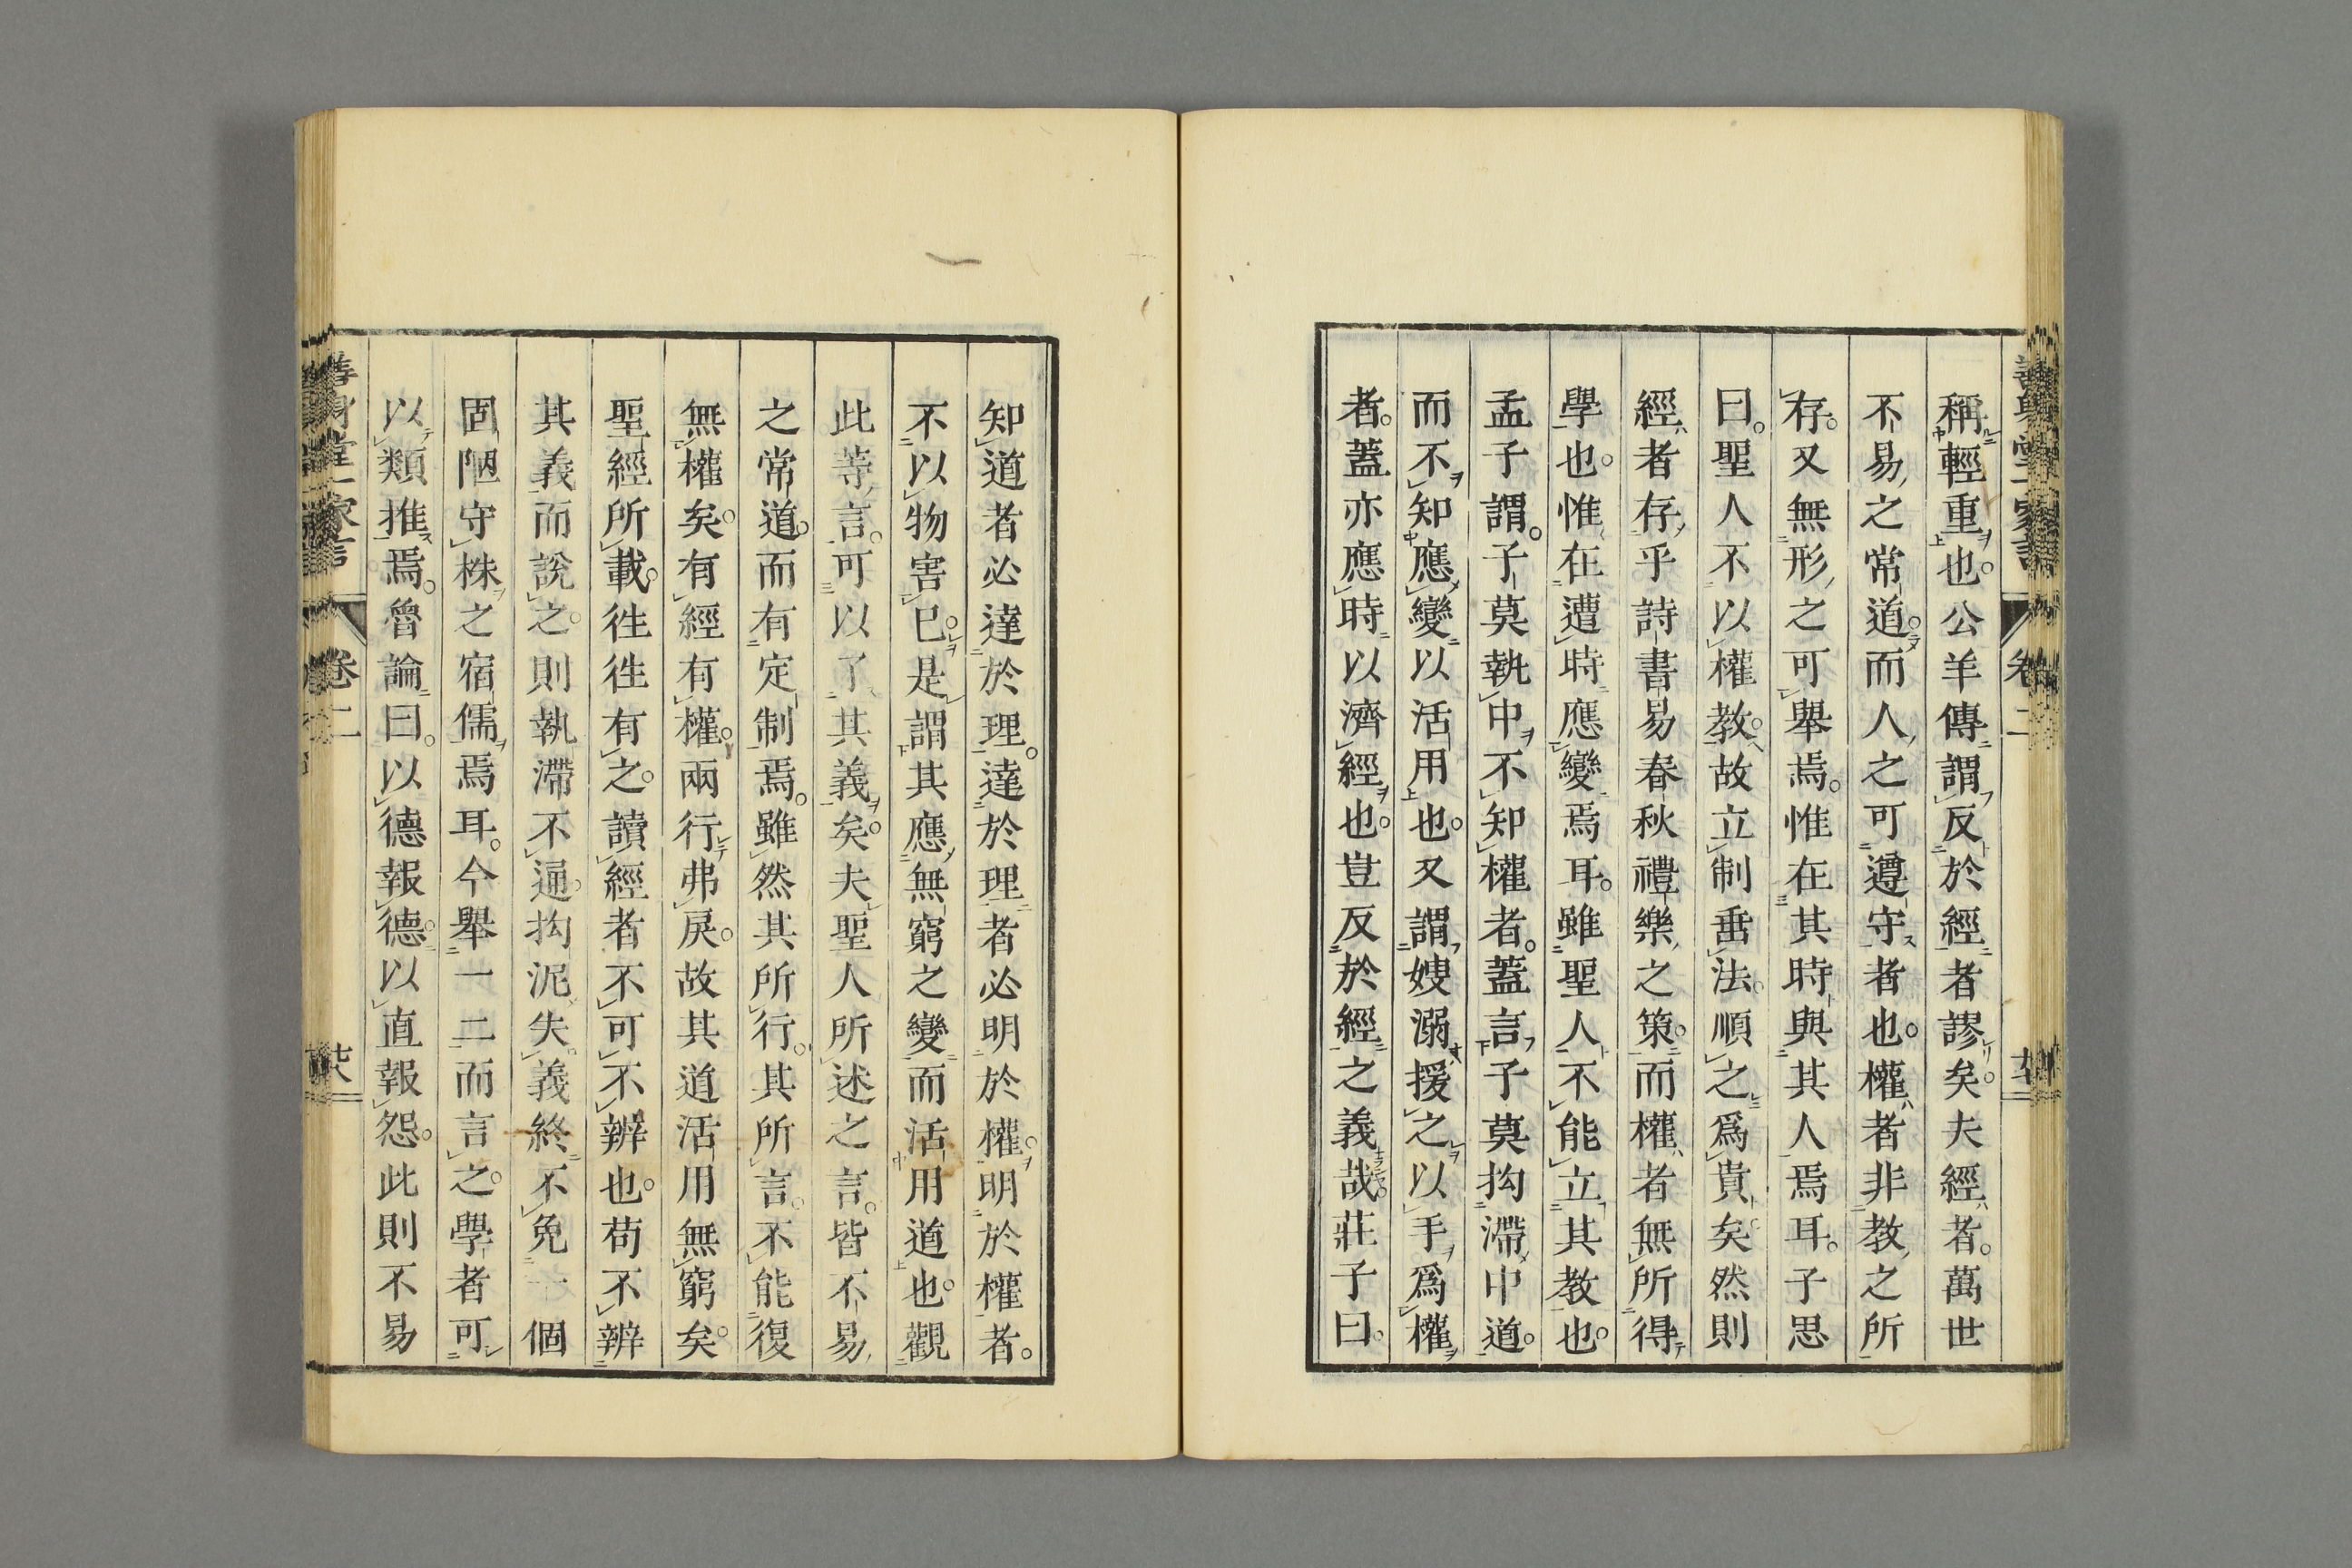 稱輕重也。公羊傳謂反於經者謬矣。夫經者。萬世
不易之常道。而人之可遵守者也。權者非教之所
存。又無形之可舉焉。惟在其時與其人焉耳。子思
曰。聖人不以權教。故立制垂法。順之爲貴矣。然則
經者存乎詩書易春秋禮樂之策。而權者無所得
學也。惟在遭時應變焉耳。雖聖人不能立其教也。
孟子謂。子莫執中不知權者。蓋言子莫拘滯中道。
而不知應變以活用也。又謂嫂溺援之以手爲權
者。蓋亦應時以濟經也。豈反於經之義哉。莊子曰。
知道者必達於理。達於理者必明於權。明於權者。
不以物害已。是謂其應無窮之變而活用道也。觀
此等言。可以了其義矣。夫聖人所述之言。皆不易
之常道。而有定制焉。雖然其所行。其所言。不能復
無權矣。有經有權。兩行弗戾。故其道活用無窮矣。
聖經所載。徃徃有之。讀經者不可不辨也。苟不辨
其義而說之。則執滯不通。拘泥失義。終不免一個
固陋守株之宿儒焉耳。今舉一二而言之。學者可
以類推焉。魯論曰。以德報德。以直報怨。此則不易
卷二